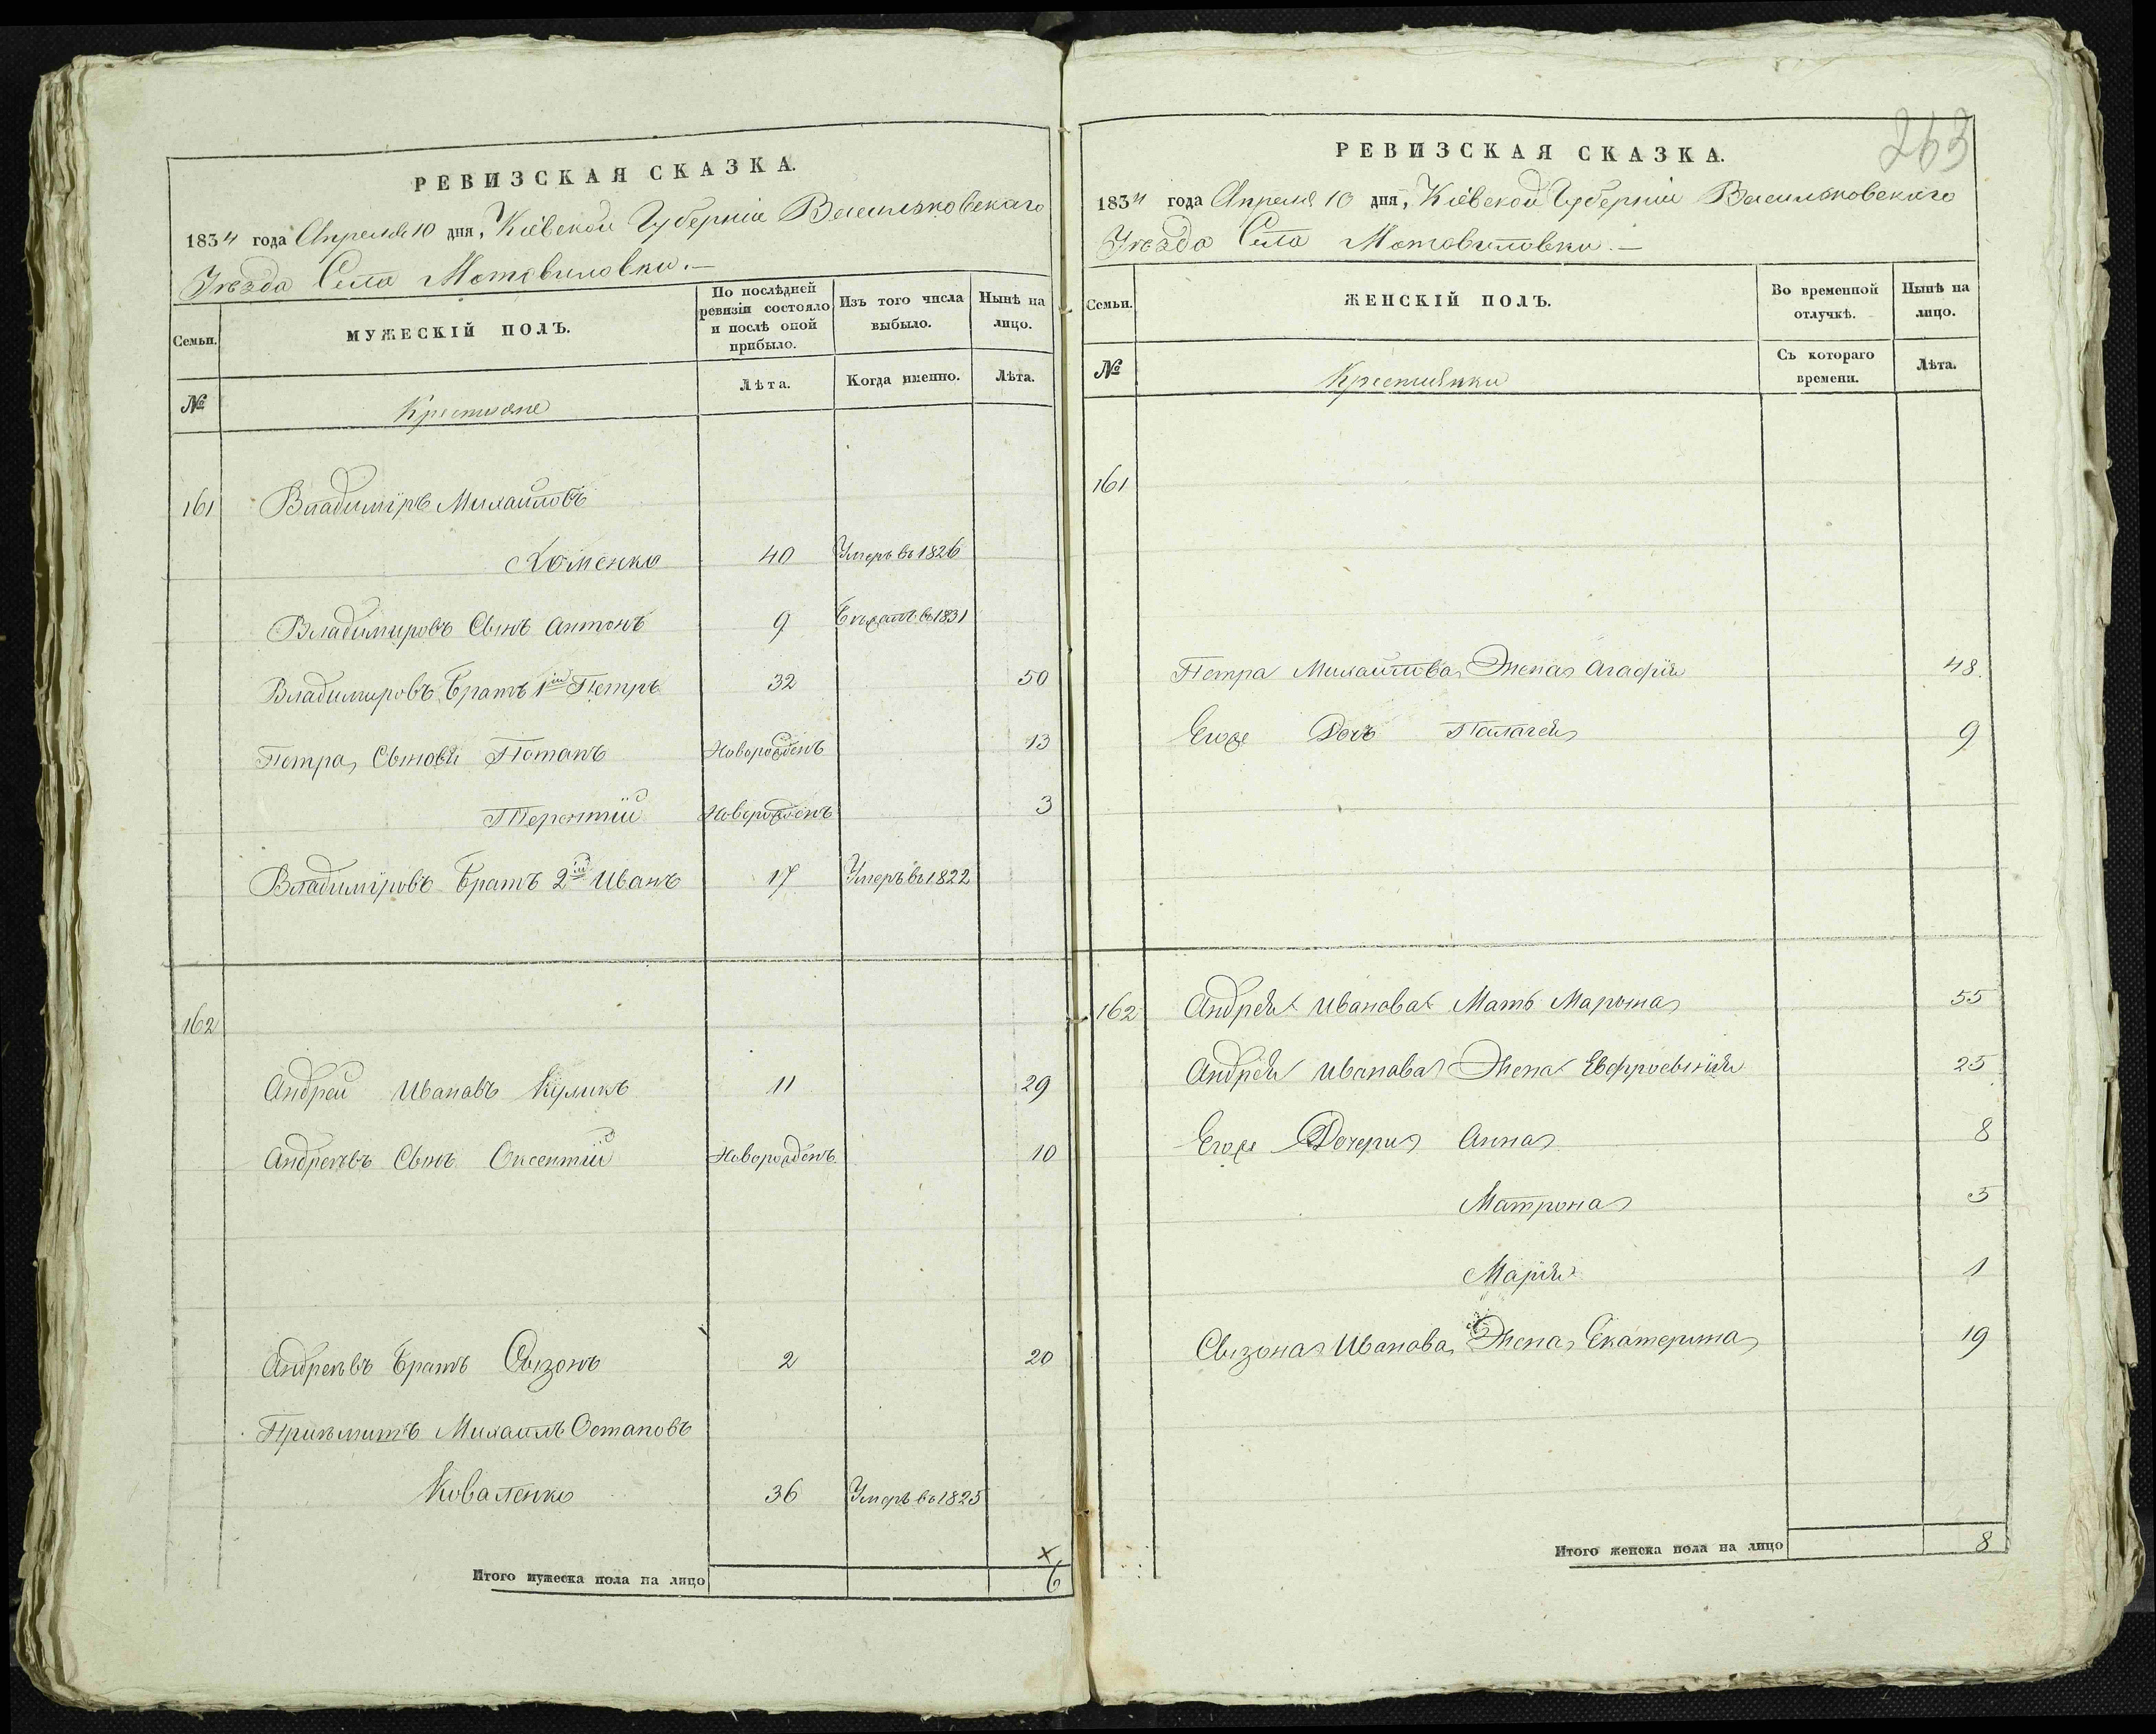 РЕВИЗСКАЯ СКАЗКА.
1834 года Апреля 10 дня, Кіевской Губерніи Васильковскаго
Уезда Села Мотовиловки.—
Семьи.
МУЖЕСКІЙ ПОЛЪ.
По послѣдней
ревизіи состояло
и послѣ оной
прибыло.
Изъ того числа
выбыло.
Нынѣ на
лицо.
№
Крестьяне
Лѣта.
Когда именно.
Лѣта.
161 Владиміръ Михайловъ
Хоменко 40 Умеръ въ 1826
Владимировъ Сынъ Антонъ 9 въ 1831
Владимировъ Братъ 1й Петръ 32 50
Петра Сыновя Потапъ Новорожденъ 13
Терентій Новорожденъ 3
Владиміровъ Братъ 2й Иванъ 17 Умеръ въ 1822
162
Андрей Ивановъ Куликъ 11 29
Андреевъ Сынъ Оксентій Новорожденъ 10
Андреевъ Братъ Сызонъ 2 20
Приємитъ Михаилъ Остаповъ
Коваленко 36 Умеръ въ 1825
Итого мужеска пола на лицо 6
263
РЕВИЗСКАЯ СКАЗКА.
1834 года Апреля 10 дня, Кіевской Губерніи Васильковскаго
Уезда Села Мотовиловки.—
Семьи.
ЖЕНСКІЙ ПОЛЪ.
Во временной
отлучкѣ.
Нынѣ на
лицо.
№
Крестьянки
Съ котораго
времени.
Лѣта.
161
Петра Михайлова Жена Агафія 48
Егоже Дочь Палагея 9
162 Андрея Иванова Мать Марьяна 55
Андрея Иванова Жена Евфросинія 25
Егоже Дочери Анна 8
Матрона 5
Марія 1
Сызона Иванова Жена Екатерина 19
Итого женска пола на лицо 8